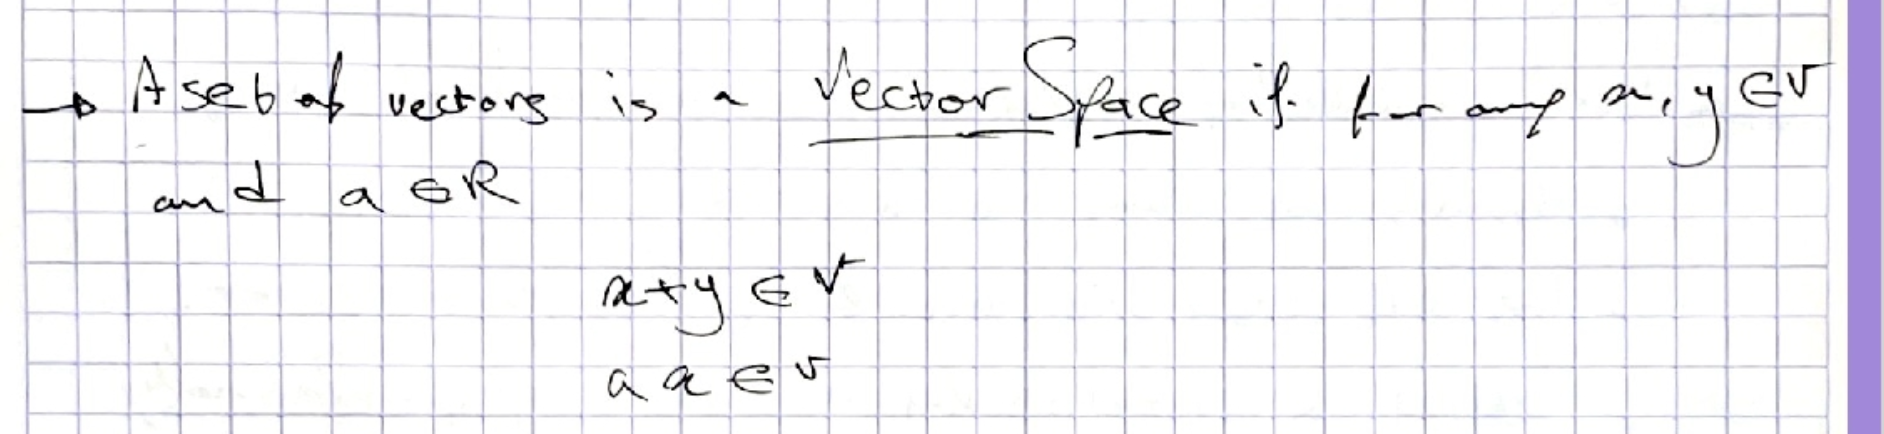 → A set of vectors is a Vector Space if for any x, y ∈ V
and a ∈ R
x+y ∈ V
a x ∈ V